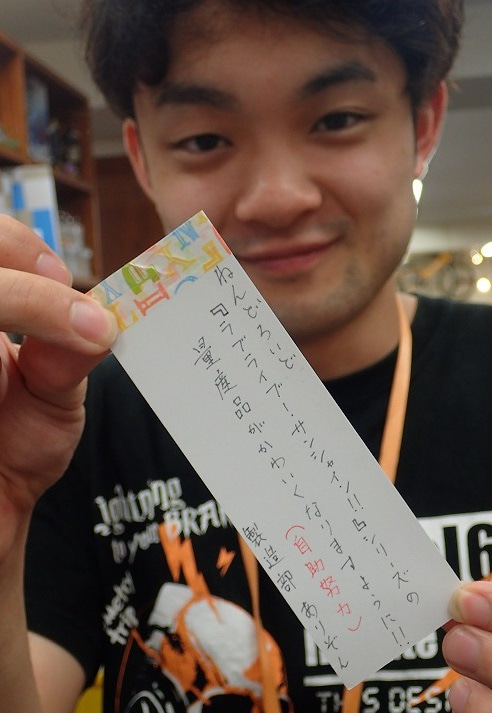 ねんどろいど
『ラブライブ！サンシャイン!!』シリーズの
量産品がかわいくなりますように!!
(自助努力)
製造部 ありそん
lightning
in your BRAIN
THIS DES